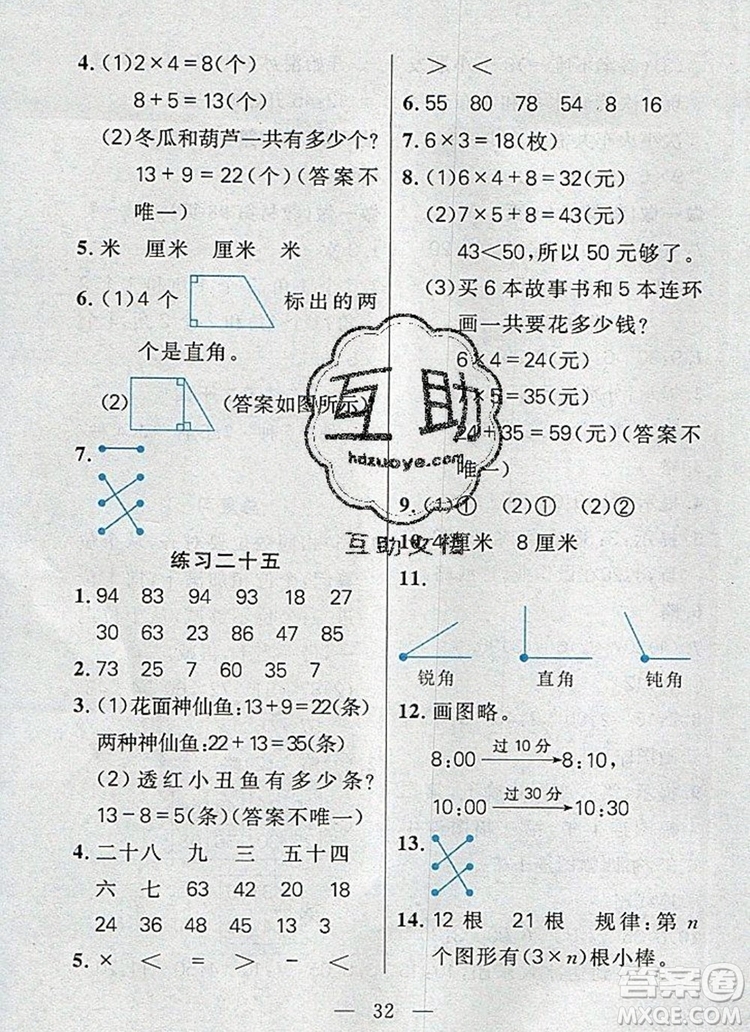 4. (1)2×4=8(个)
8+5=13(个)
(2)冬瓜和葫芦一共有多少个?
13+9=22(个)(答案不
唯一)
5. 米 厘米 厘米 米
6. (1)4个 标出的两
个是直角。
(2) (答案如图所示)
7.
练习二十五
1. 94 83 94 93 18 27
30 63 23 86 47 85
2. 73 25 7 60 35 7
3. (1)花面神仙鱼:13+9=22(条)
两种神仙鱼:22+13=35(条)
(2)透红小丑鱼有多少条?
13-8=5(条)(答案不唯一)
4. 二十八 九 三 五十四
六 七 63 42 18 8
24 36 48 45 13 3
5. × < = > − <
> <
6. 55 80 78 54 8 16
7. 6×3=18(枚)
8. (1)6×4+8=32(元)
(2)7×5+8=43(元)
43<50,所以50元够了。
(3)买6本故事书和5本连环
画一共要花多少钱?
6×4=24(元)
7×5=35(元)
24+35=59(元)(答案不
唯一)
9. (1)① (2)① (2)②
10. 4厘米 8厘米
11.
锐角 直角 钝角
12. 画图略。
8:00 过10分 8:10,
10:00 过30分 10:30
13.
14. 12根 21根 规律:第n
个图形有(3×n)根小棒。
32
互助
hdzuoye.com
互助文档
答案圈
MXQE.COM